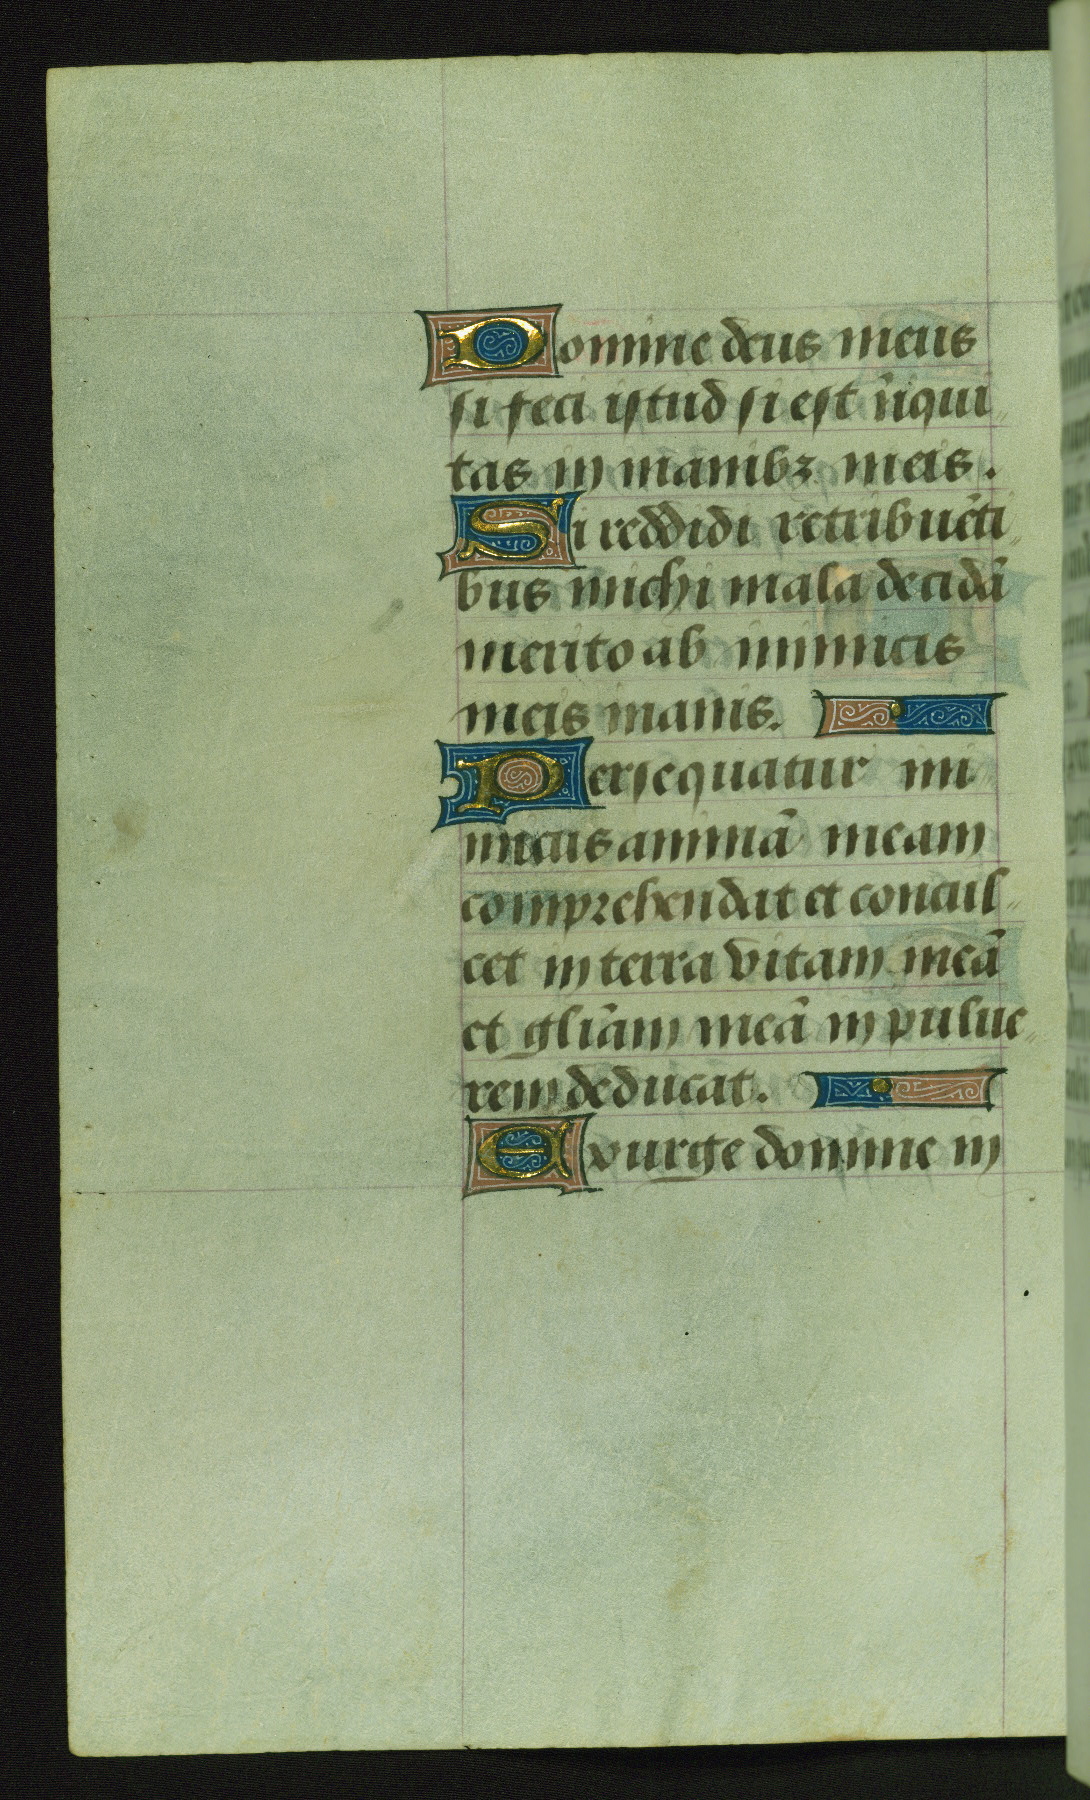 Domine deus meus
si feci istud si est īiqui
tas in manibꝫ meis.
Si reddidi retribuēti
bus michi mala decidā
merito ab inimicis
meis inanis.
Persequatur ini
micus animā meam
comprehendat et concul
cet in terra vitam meā
et gliām meā in pulue
rem deducat.
Exurge domine in